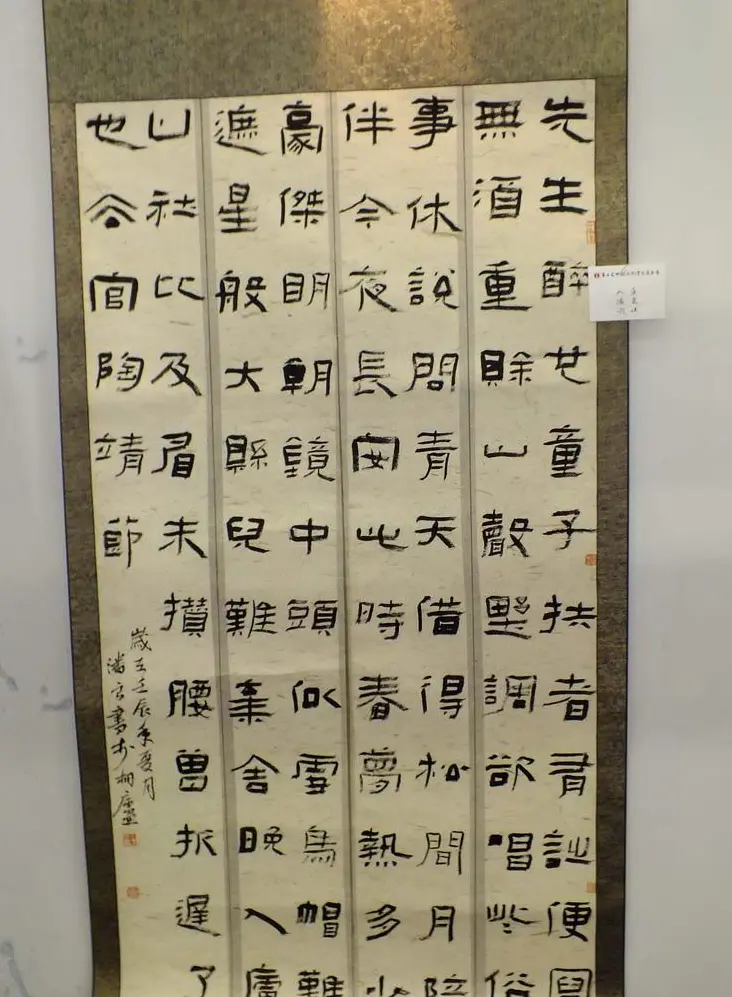 先生醉也童子扶者有詩便寫
無酒重賒山聲野調欲唱些俗
事休說問青天借得松間月陪
伴今夜長安此時春夢熱多少
豪傑明朝鏡中頭似雪烏帽難
遮星般大縣兒難棄舍晚入廬
山社比及眉未攢腰曾折遲了
也去官陶靖節
歲在壬辰年夏月
潘云書於桐廬